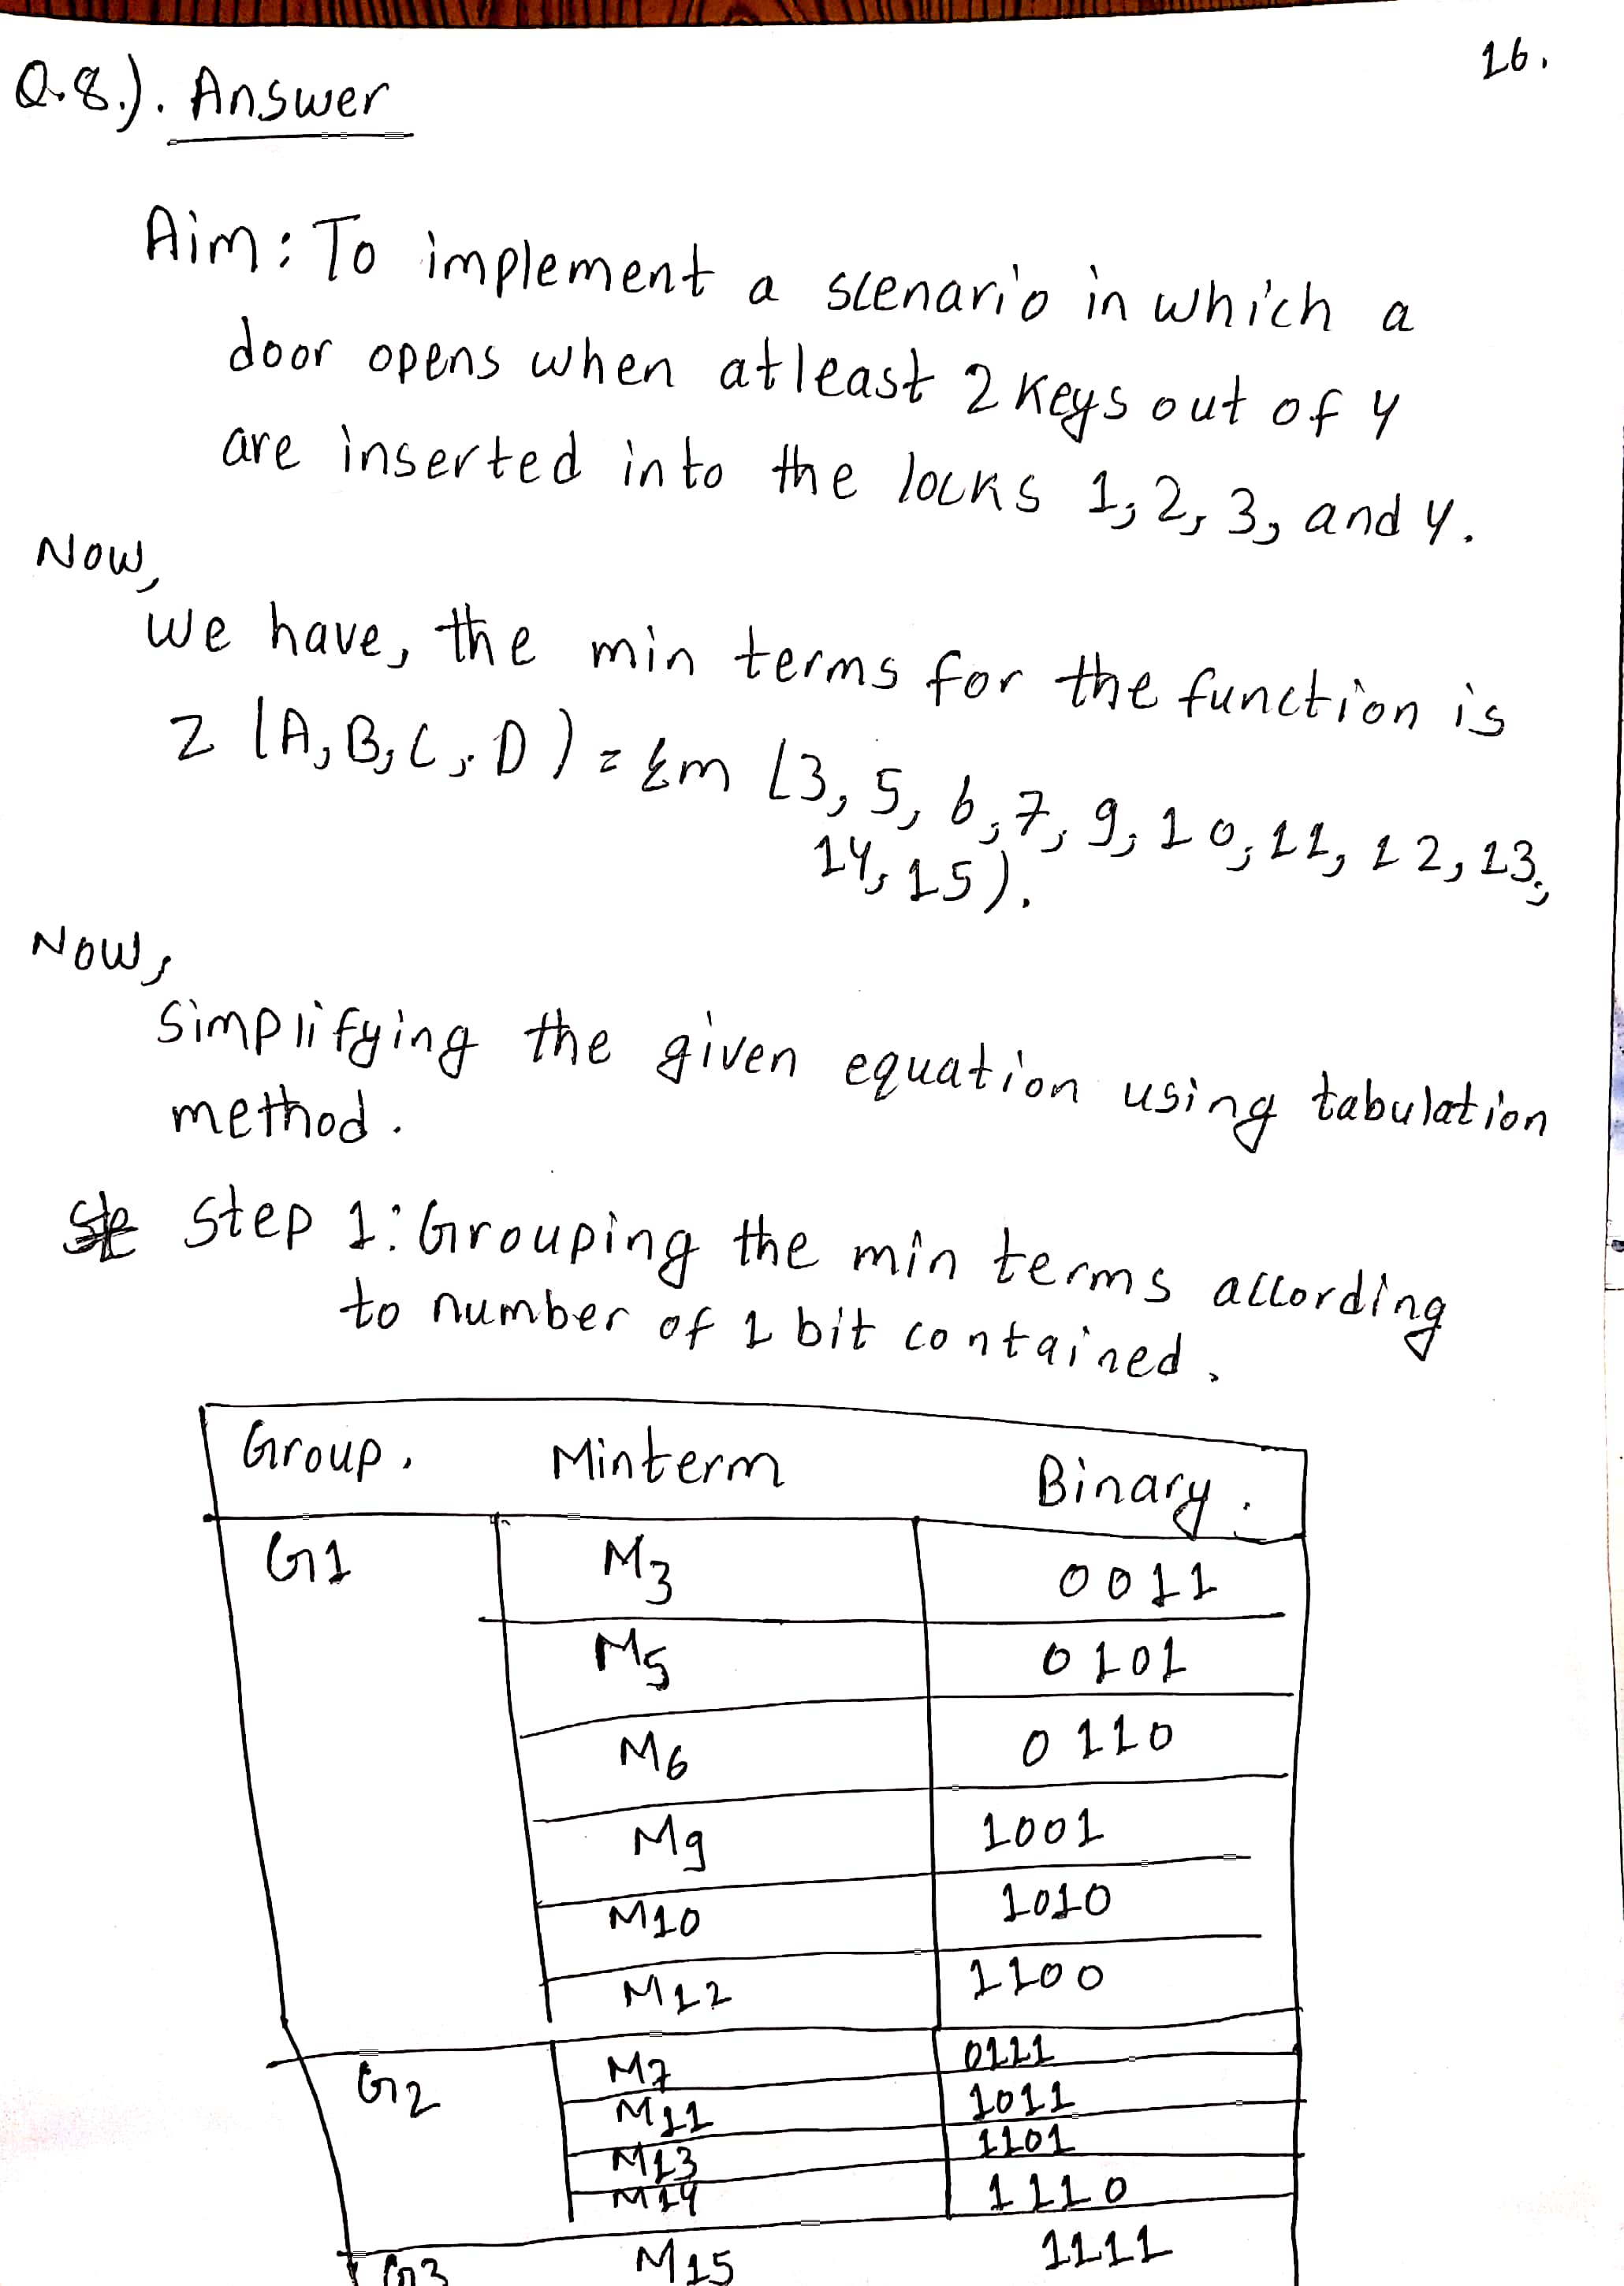 16.
Q.8.). Answer
Aim: To implement a scenario in which a
door opens when atleast 2 keys out of 4
are inserted into the locks 1, 2, 3, and 4.
Now,
we have, the min terms for the function is
Z (A, B, C, D) = Σm (3, 5, 6, 7, 9, 10, 11, 12, 13,
14, 15).
Now,
simplifying the given equation using tabulation
method.
Step 1: Grouping the min terms according
to number of 1 bit contained.
Group. Minterm Binary.
G1 M3 0011
M5 0101
M6 0110
M9 1001
M10 1010
M12 1100
G2 M7 0111
M11 1011
M13 1101
M14 1110
G3 M15 1111